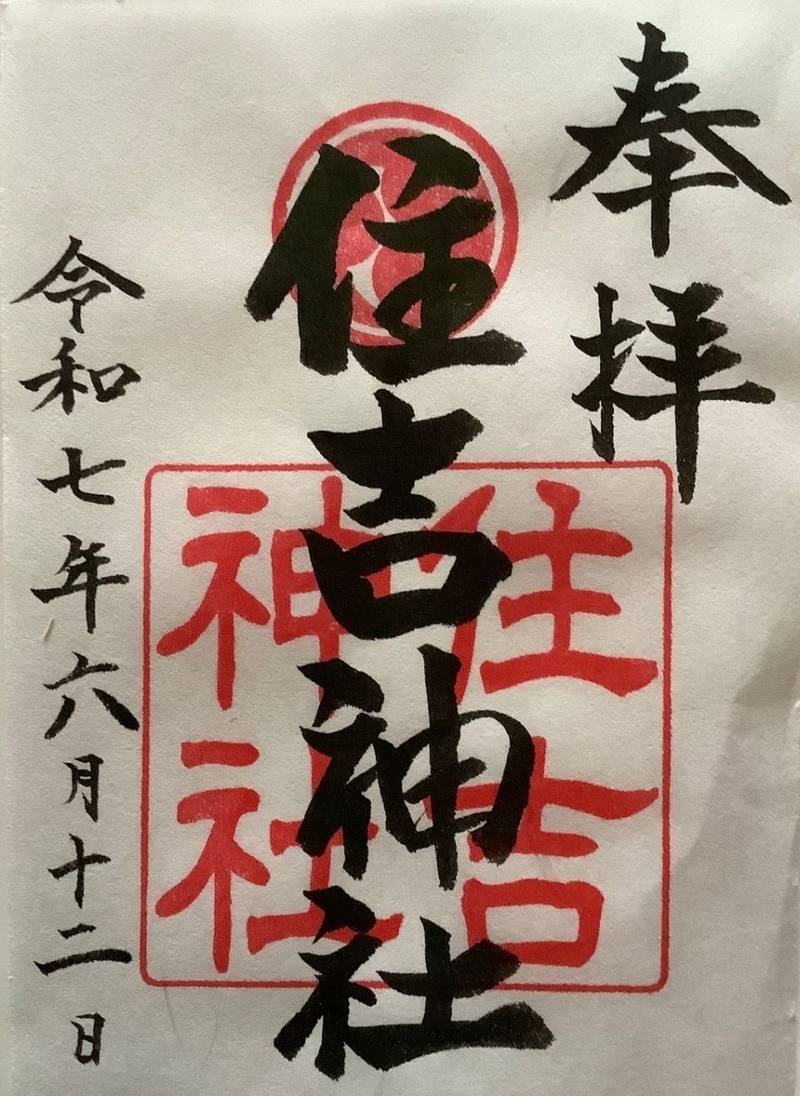 奉拝
住吉神社
住吉
神社
令和七年六月十二日